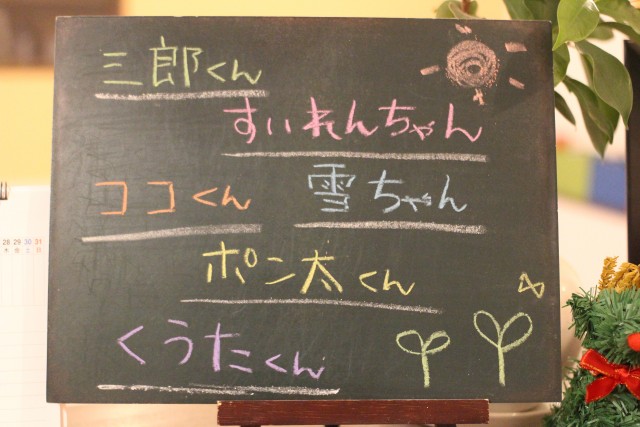 三郎くん
すいれんちゃん
ココくん 雪ちゃん
ポン太くん
くうたくん
28 29 30 31